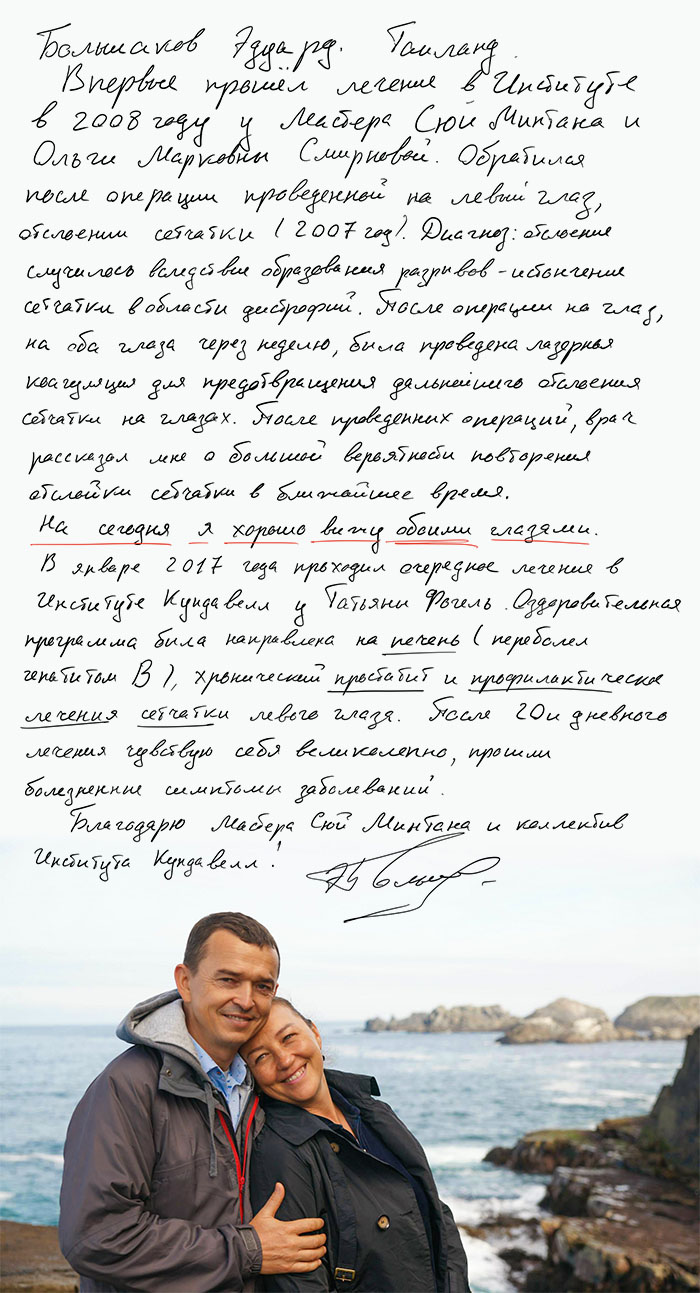 Большаков Эдуард. Таиланд.
Впервые прошёл лечение в Институте
в 2008 году у Мастера Сюй Минтана и
Ольги Марковны Смирновой. Обратился
после операции проведенной на левый глаз,
отслоении сетчатки (2007 год). Диагноз: отслоение
случилось вследствие образования разрывов - истончение
сетчатки в области дистрофий. После операции на глаз,
на оба глаза через неделю, была проведена лазерная
коагуляция для предотвращения дальнейшего отслоения
сетчатки на глазах. После проведенных операций, врач
рассказал мне о большой вероятности повторения
отслойки сетчатки в ближайшее время.
На сегодня я хорошо вижу обоими глазами.
В январе 2017 года проходил очередное лечение в
Институте Кундавелл у Татьяны Фогель. Оздоровительная
программа была направлена на печень (переболел
гепатитом В), хронический простатит и профилактическое
лечения сетчатки левого глаза. После 20и дневного
лечения чувствую себя великолепно, прошли
болезненные симптомы заболеваний.
Благодарю Мастера Сюй Минтана и коллектив
Института Кундавелл!